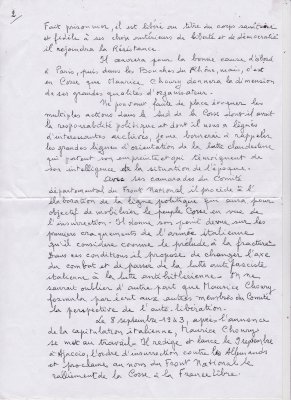 Fait prisonnier, il est libéré au titre du corps sanitaire
et fidèle à ses choix intérieurs de liberté et de démocratie
il rejoindra la Résistance
Il œuvrera pour la bonne cause d'abord
à Paris, puis dans les Bouches du Rhône, mais, c'est
en Corse que Maurice, Choury donnera la dimension
de ses grandes qualités d'organisateur.
Ne pouvant faute de place évoquer les
multiples actions dans le Sud de la Corse dont il avait
la responsabilité politique et dont il nous a légués
d'intéressantes archives, je me bornerai à rappeler
les grandes lignes d'orientation de la lutte clandestine
qui portent son empreinte et qui témoignent de
son intelligence de la situation de l'époque.
Avec ses camarades du Comité
départemental du Front National il procède à l'
élaboration de la ligne politique qui aura pour
objectif de mobiliser le peuple Corse en vue de
l'insurrection. Il donne son point de vue sur les
premiers craquements de l'armée italienne
qu'il considère comme le prélude à la fracture
Dans ces conditions il propose de changer l'axe
du combat et de passer de la lutte antifasciste
italienne à la lutte anti-hitlérienne. On ne
saurait oublier d'autre part que Maurice Choury
formula par écrit aux autres membres du Comité
la perspective de l'auto. libération.
Le 8 septembre 1943, après l'annonce
de la capitulation italienne, Maurice Choury
se met au travail. Il rédige et lance le 9 septembre
à Ajaccio, l'ordre d'insurrection contre les Allemands
et proclame au nom du Front National le
ralliement de la Corse à la France Libre.